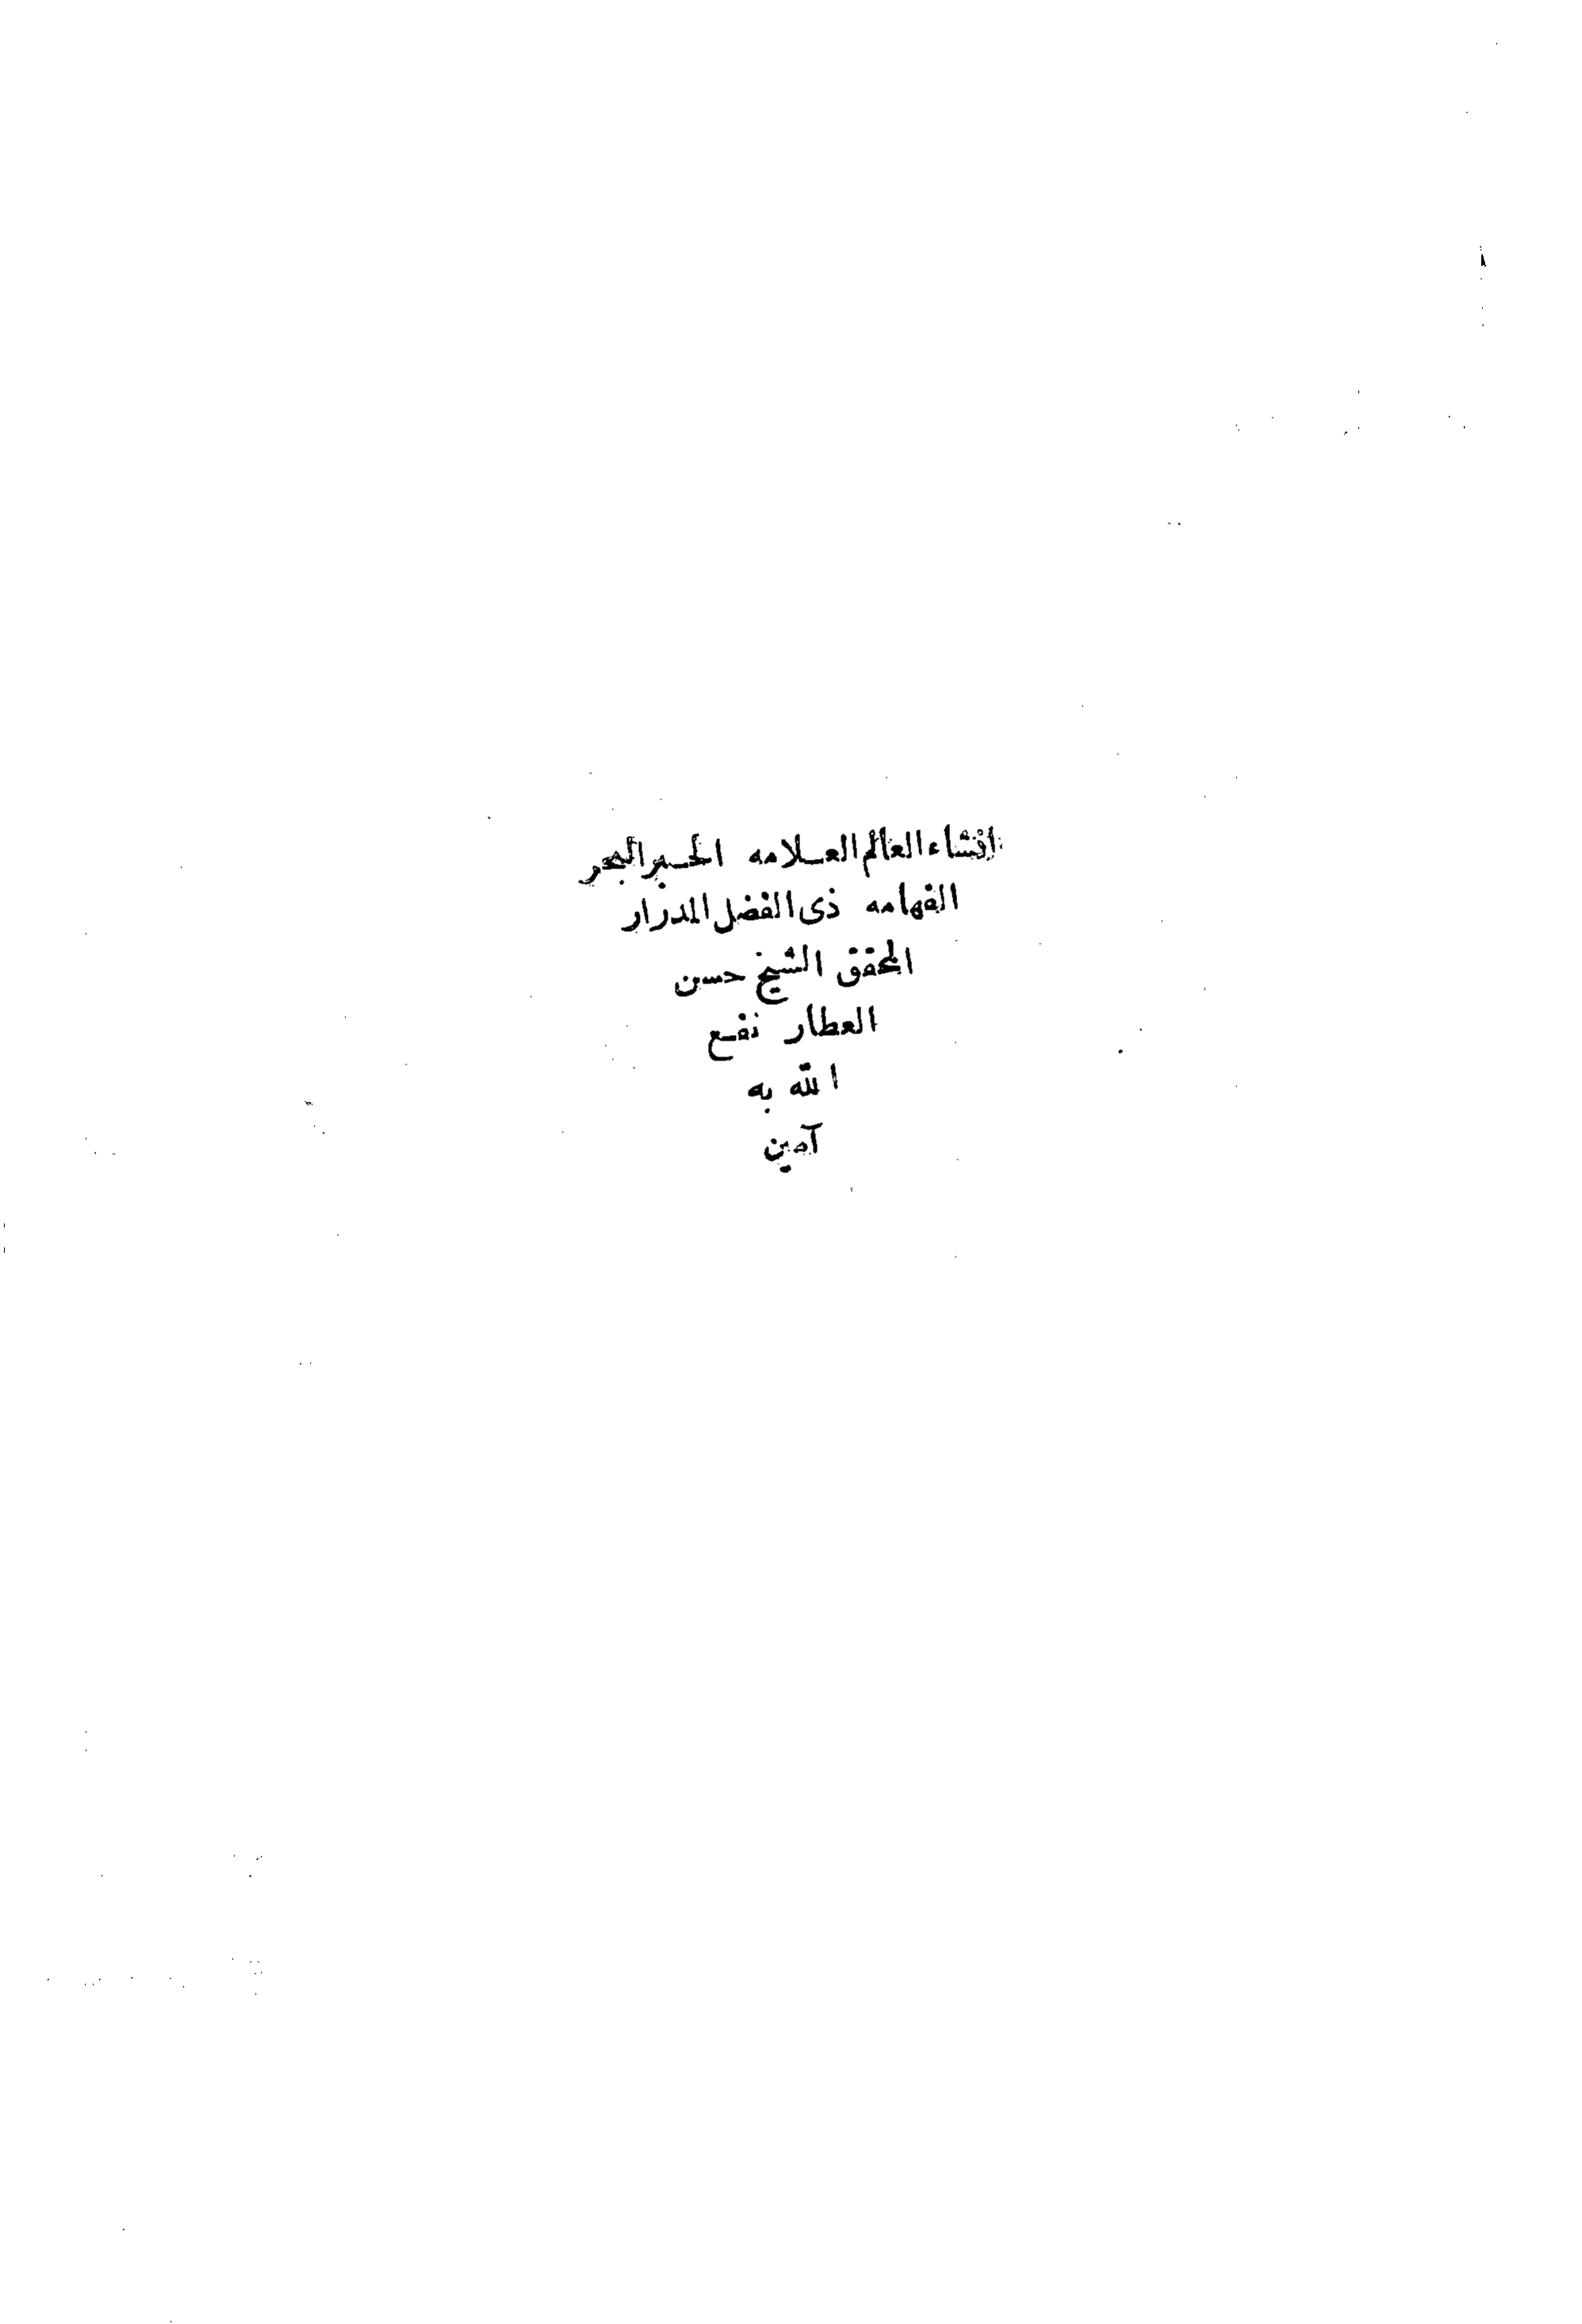 انشاء العالم العلامه الحبر البحر
الفهامه ذى الفضل المدرار
المحقق الشيخ حسن
العطار نفع
الله به
آمين